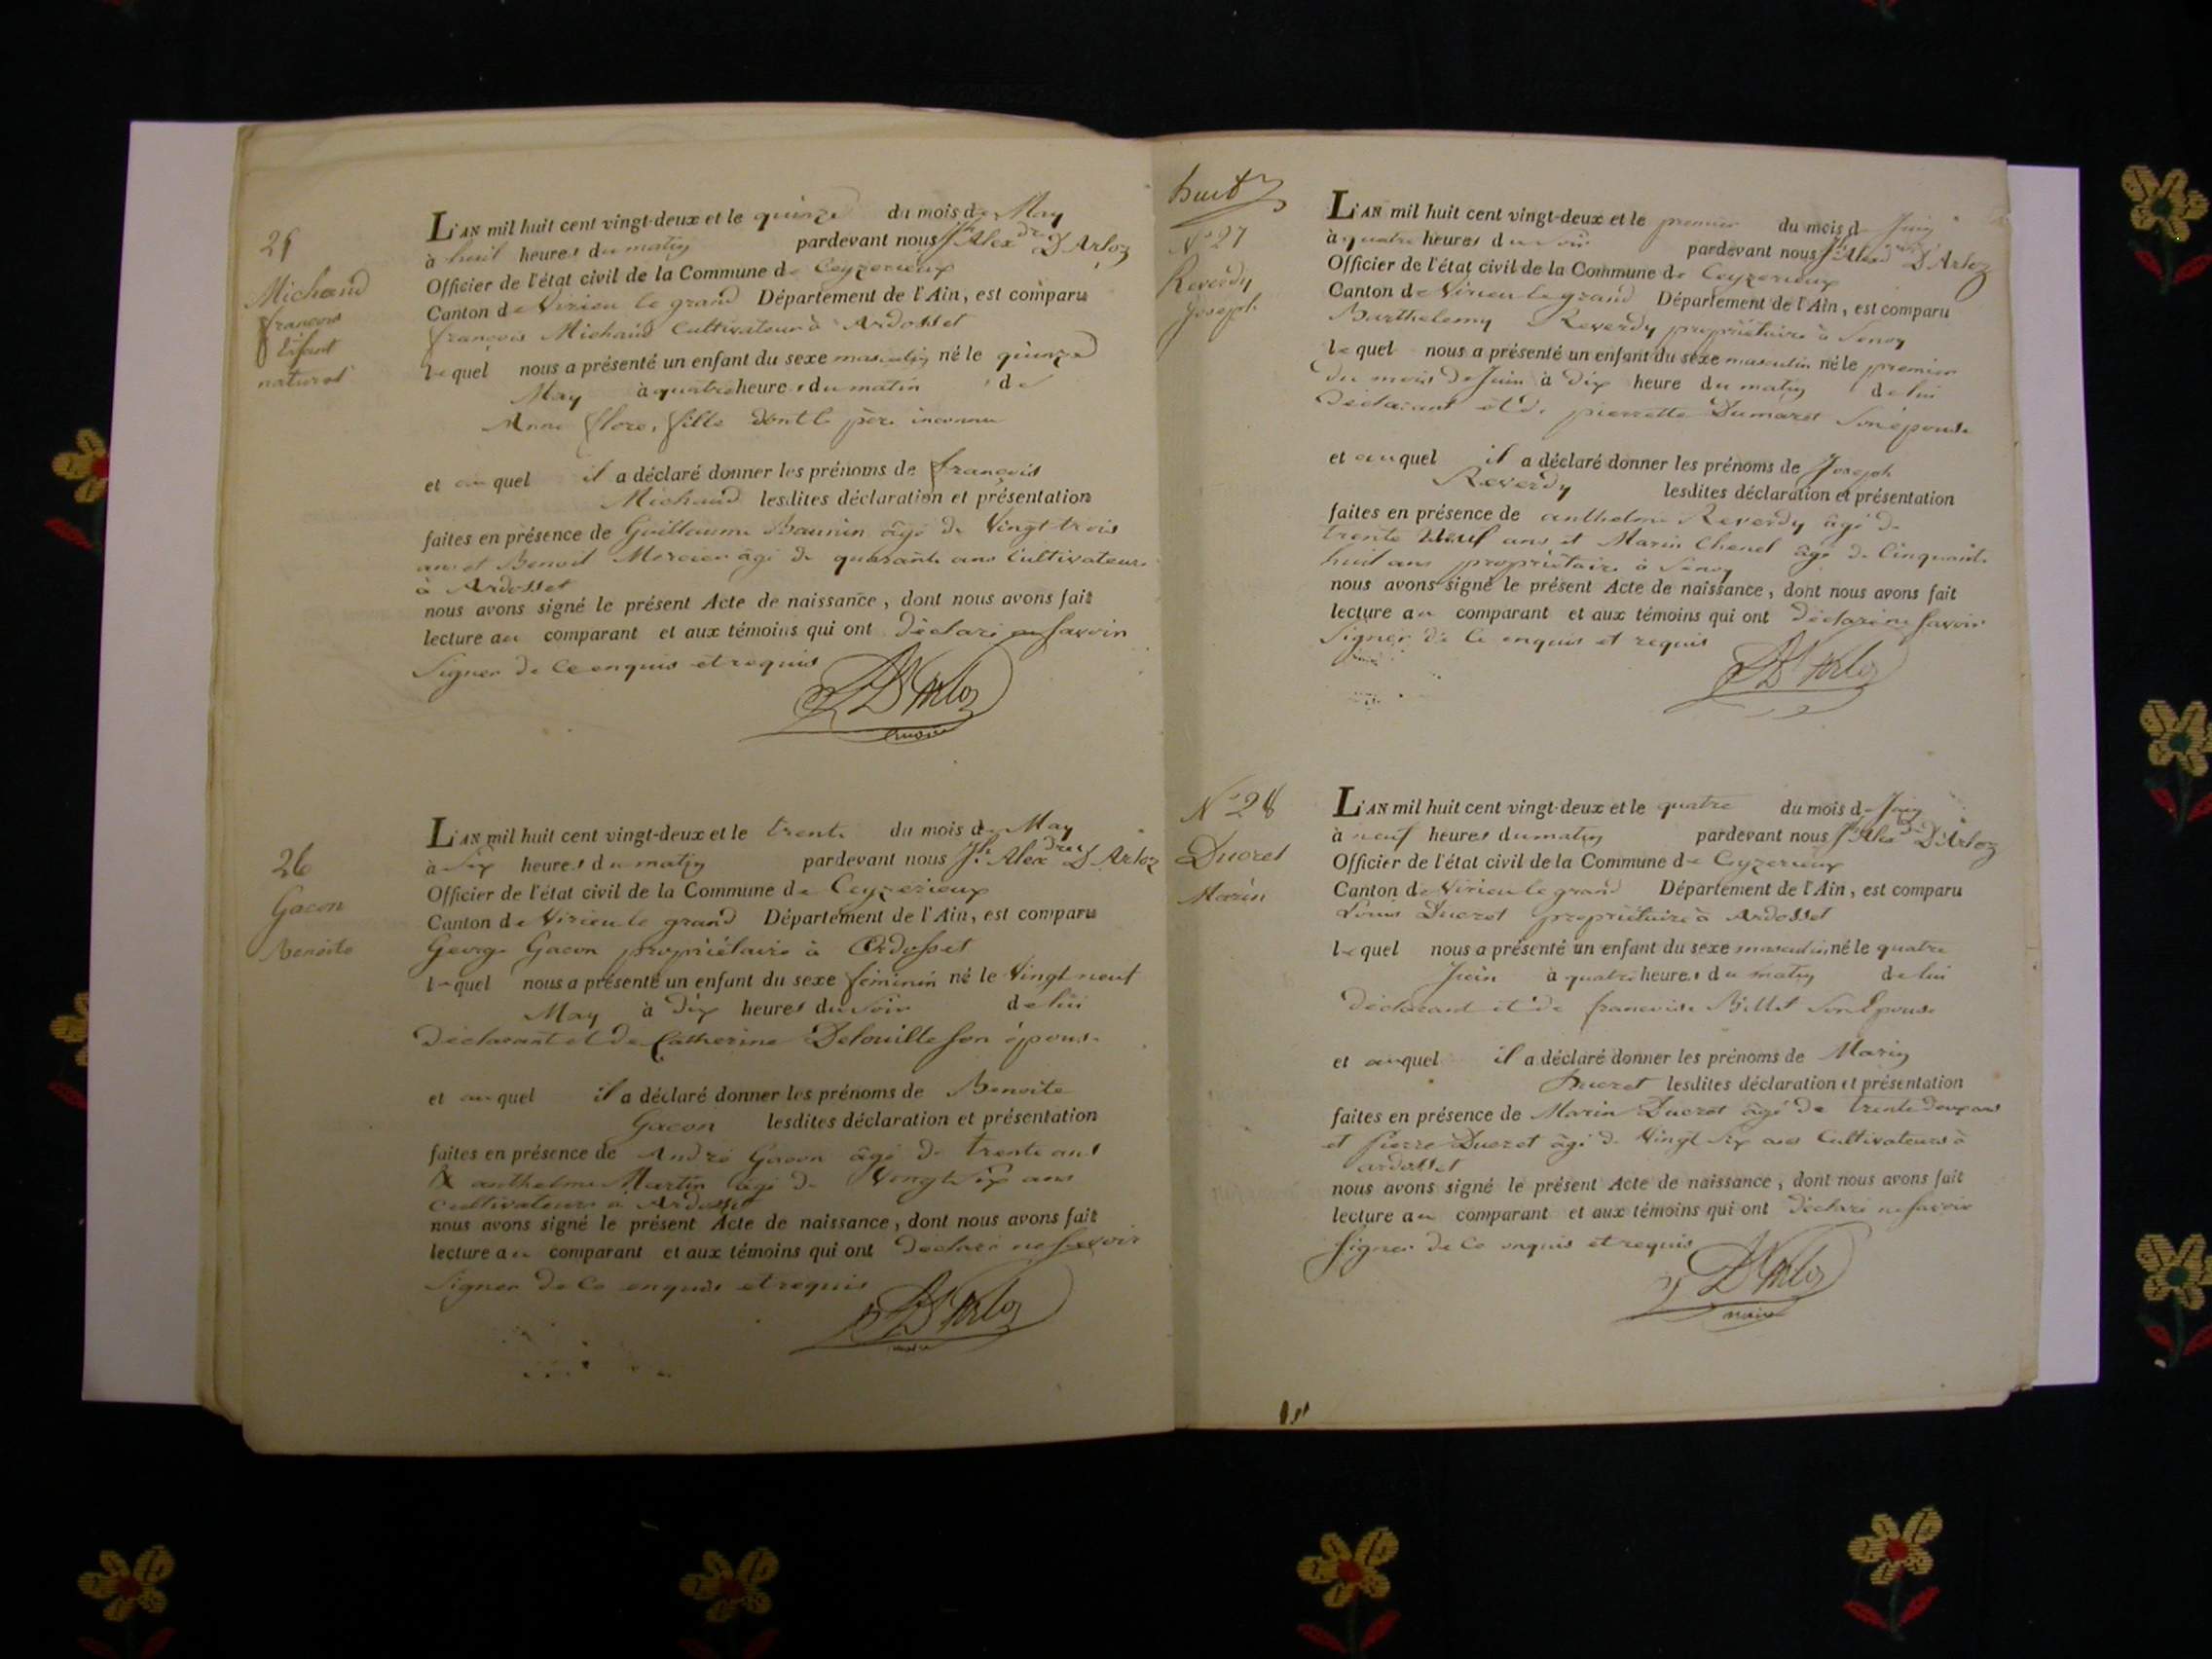 25
Michaud
francois
Enfant
naturel
L'AN mil huit cent vingt-deux et le quinze du mois de May
à huit heures du matin pardevant nous Jh Alexdre D'Arloz
Officier de l'état civil de la Commune de Ceyzerieux
Canton de Virieu le grand Département de l'Ain, est comparu
françois Michaud Cultivateur à Ardosset
lequel nous a présenté un enfant du sexe masculin né le quinze
May à quatre heures du matin de
Anne flore, fille dont le père inconnu
et auquel il a déclaré donner les prénoms de françois
Michaud lesdites déclaration et présentation
faites en présence de Guillaume Baunin âgé de Vingt trois
ans et Benoit Mercier âgé de quarante ans Cultivateurs
à Ardosset
nous avons signé le présent Acte de naissance, dont nous avons fait
lecture au comparant et aux témoins qui ont déclaré ne savoir
Signer de ce enquis et requis
D'Arloz
maire
26
Gacon
Benoite
L'AN mil huit cent vingt-deux et le trente du mois de May
à Six heures du matin pardevant nous Jh Alexdre D'Arloz
Officier de l'état civil de la Commune de Ceyzerieux
Canton de Virieu le grand Département de l'Ain, est comparu
George Gacon propriétaire à Ordosset
lequel nous a présenté un enfant du sexe féminin né le Vingt neuf
May à dix heures du Soir de lui
Déclarant et de Catherine Delouille son épouse
et auquel il a déclaré donner les prénoms de Benoite
Gacon lesdites déclaration et présentation
faites en présence de André Gacon âgé de trente ans
& anthelme Martin âgé de Vingt Six ans
cultivateurs à Ardosset
nous avons signé le présent Acte de naissance, dont nous avons fait
lecture au comparant et aux témoins qui ont déclaré ne Savoir
Signer de Ce enquis et requis
D'Arloz
maire
huit
No 27
Reverdy
Joseph
L'AN mil huit cent vingt-deux et le premier du mois de Juin
à quatre heures du soir pardevant nous Jh Alexdre D'Arloz
Officier de l'état civil de la Commune de Ceyzerieux
Canton de Virieu le grand Département de l'Ain, est comparu
Barthelemy Reverdy propriétaire à Senoy
lequel nous a présenté un enfant du sexe masculin né le premier
du mois de Juin à dix heure du matin de lui
Déclarant et de pierrette Dumaret Son épouse
et auquel il a déclaré donner les prénoms de Joseph
Reverdy lesdites déclaration et présentation
faites en présence de anthelme Reverdy âgé de
trente neuf ans et Marin Chenel âgé de Cinquante
huit ans propriétaire à Senoy
nous avons signé le présent Acte de naissance, dont nous avons fait
lecture au comparant et aux témoins qui ont déclaré ne Savoir
Signer de Ce enquis et requis
D'Arloz
No 28
Ducret
Marin
L'AN mil huit cent vingt-deux et le quatre du mois de Juin
à neuf heures du matin pardevant nous Jh Alexdre D'Arloz
Officier de l'état civil de la Commune de Ceyzerieux
Canton de Virieu le grand Département de l'Ain, est comparu
Louis Ducret propriétaire à Ardosset
lequel nous a présenté un enfant du sexe masculin né le quatre
Juin à quatre heures du matin de lui
déclarant et de francoise Billet Son Epouse
et auquel il a déclaré donner les prénoms de Marin
Ducret lesdites déclaration et présentation
faites en présence de Marin Ducret âgé de trente deux ans
et pierre Ducret âgé de Vingt Six ans Cultivateurs à
ardosset
nous avons signé le présent Acte de naissance, dont nous avons fait
lecture au comparant et aux témoins qui ont déclaré ne savoir
signer de Ce enquis et requis
D'Arloz
maire